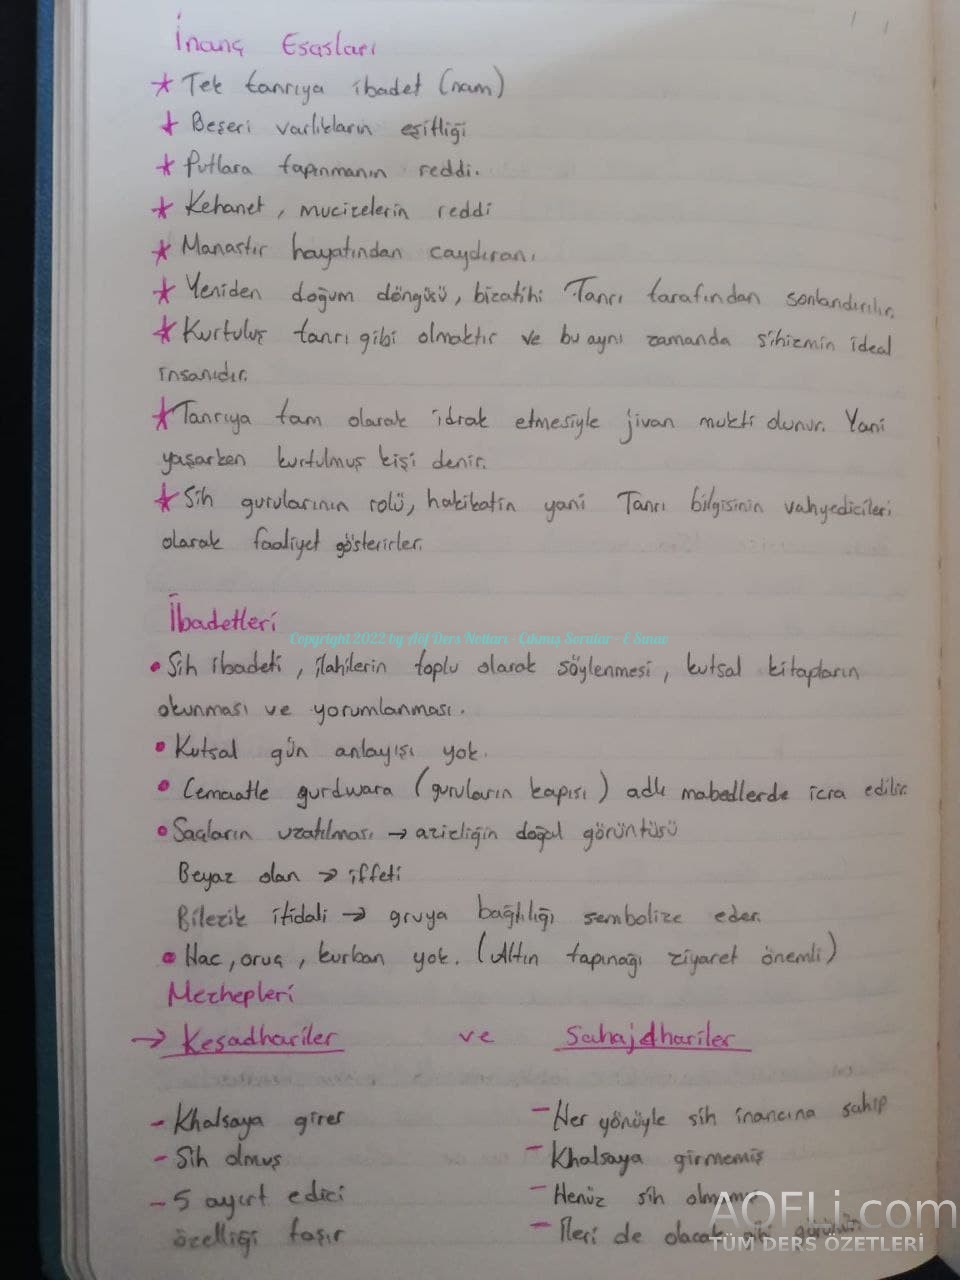 İnanç Esasları
* Tek tanrıya ibadet (nam)
* Beşeri varlıkların eşitliği
* Putlara tapınmanın reddi.
* Kehanet, mucizelerin reddi
* Manastır hayatından caydıran.
* Yeniden doğum döngüsü, bizatihi Tanrı tarafından sonlandırılır.
* Kurtuluş tanrı gibi olmaktır ve bu aynı zamanda sihizmin ideal
insanıdır.
* Tanrıya tam olarak idrak etmesiyle jivan mukti olunur. Yani
yaşarken kurtulmuş kişi denir.
* Sih gurularının rolü, hakikatin yani Tanrı bilgisinin vahyedicileri
olarak faaliyet gösterirler.
İbadetleri
Copyright 2022 by Aöf Ders Notları - Çıkmış Sorular - E Sınav
• Sih ibadeti, ilahilerin toplu olarak söylenmesi, kutsal kitapların
okunması ve yorumlanması.
• Kutsal gün anlayışı yok.
• Cemaatle gurdwara (guruların kapısı) adlı mabedlerde icra edilir
• Saçların uzatılması → azizliğin doğal görüntüsü
Beyaz olan → iffeti
Bilezik itidali → gruya bağlılığı sembolize eder.
• Hac, oruç, kurban yok. (Altın tapınağı ziyaret önemli)
Mezhepleri
→ Keşadhariler ve Sahajdhariler
- Khalsaya girer
- Sih olmuş
- 5 ayırt edici
özelliği taşır
- Her yönüyle sih inancına sahip
- Khalsaya girmemiş
- Henüz sih olmamış
- İleri de olacak gibi görülür
AOFLi.com
TÜM DERS ÖZETLERİ